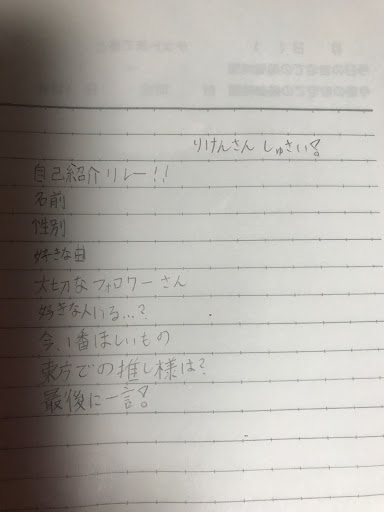 りけんさん しゅさい!
自己紹介リレー!!
名前
性別
好きな
大切なフォロワーさん
好きな人いる...?
今、1番ほしいもの
東方での推し様は?
最後に一言!